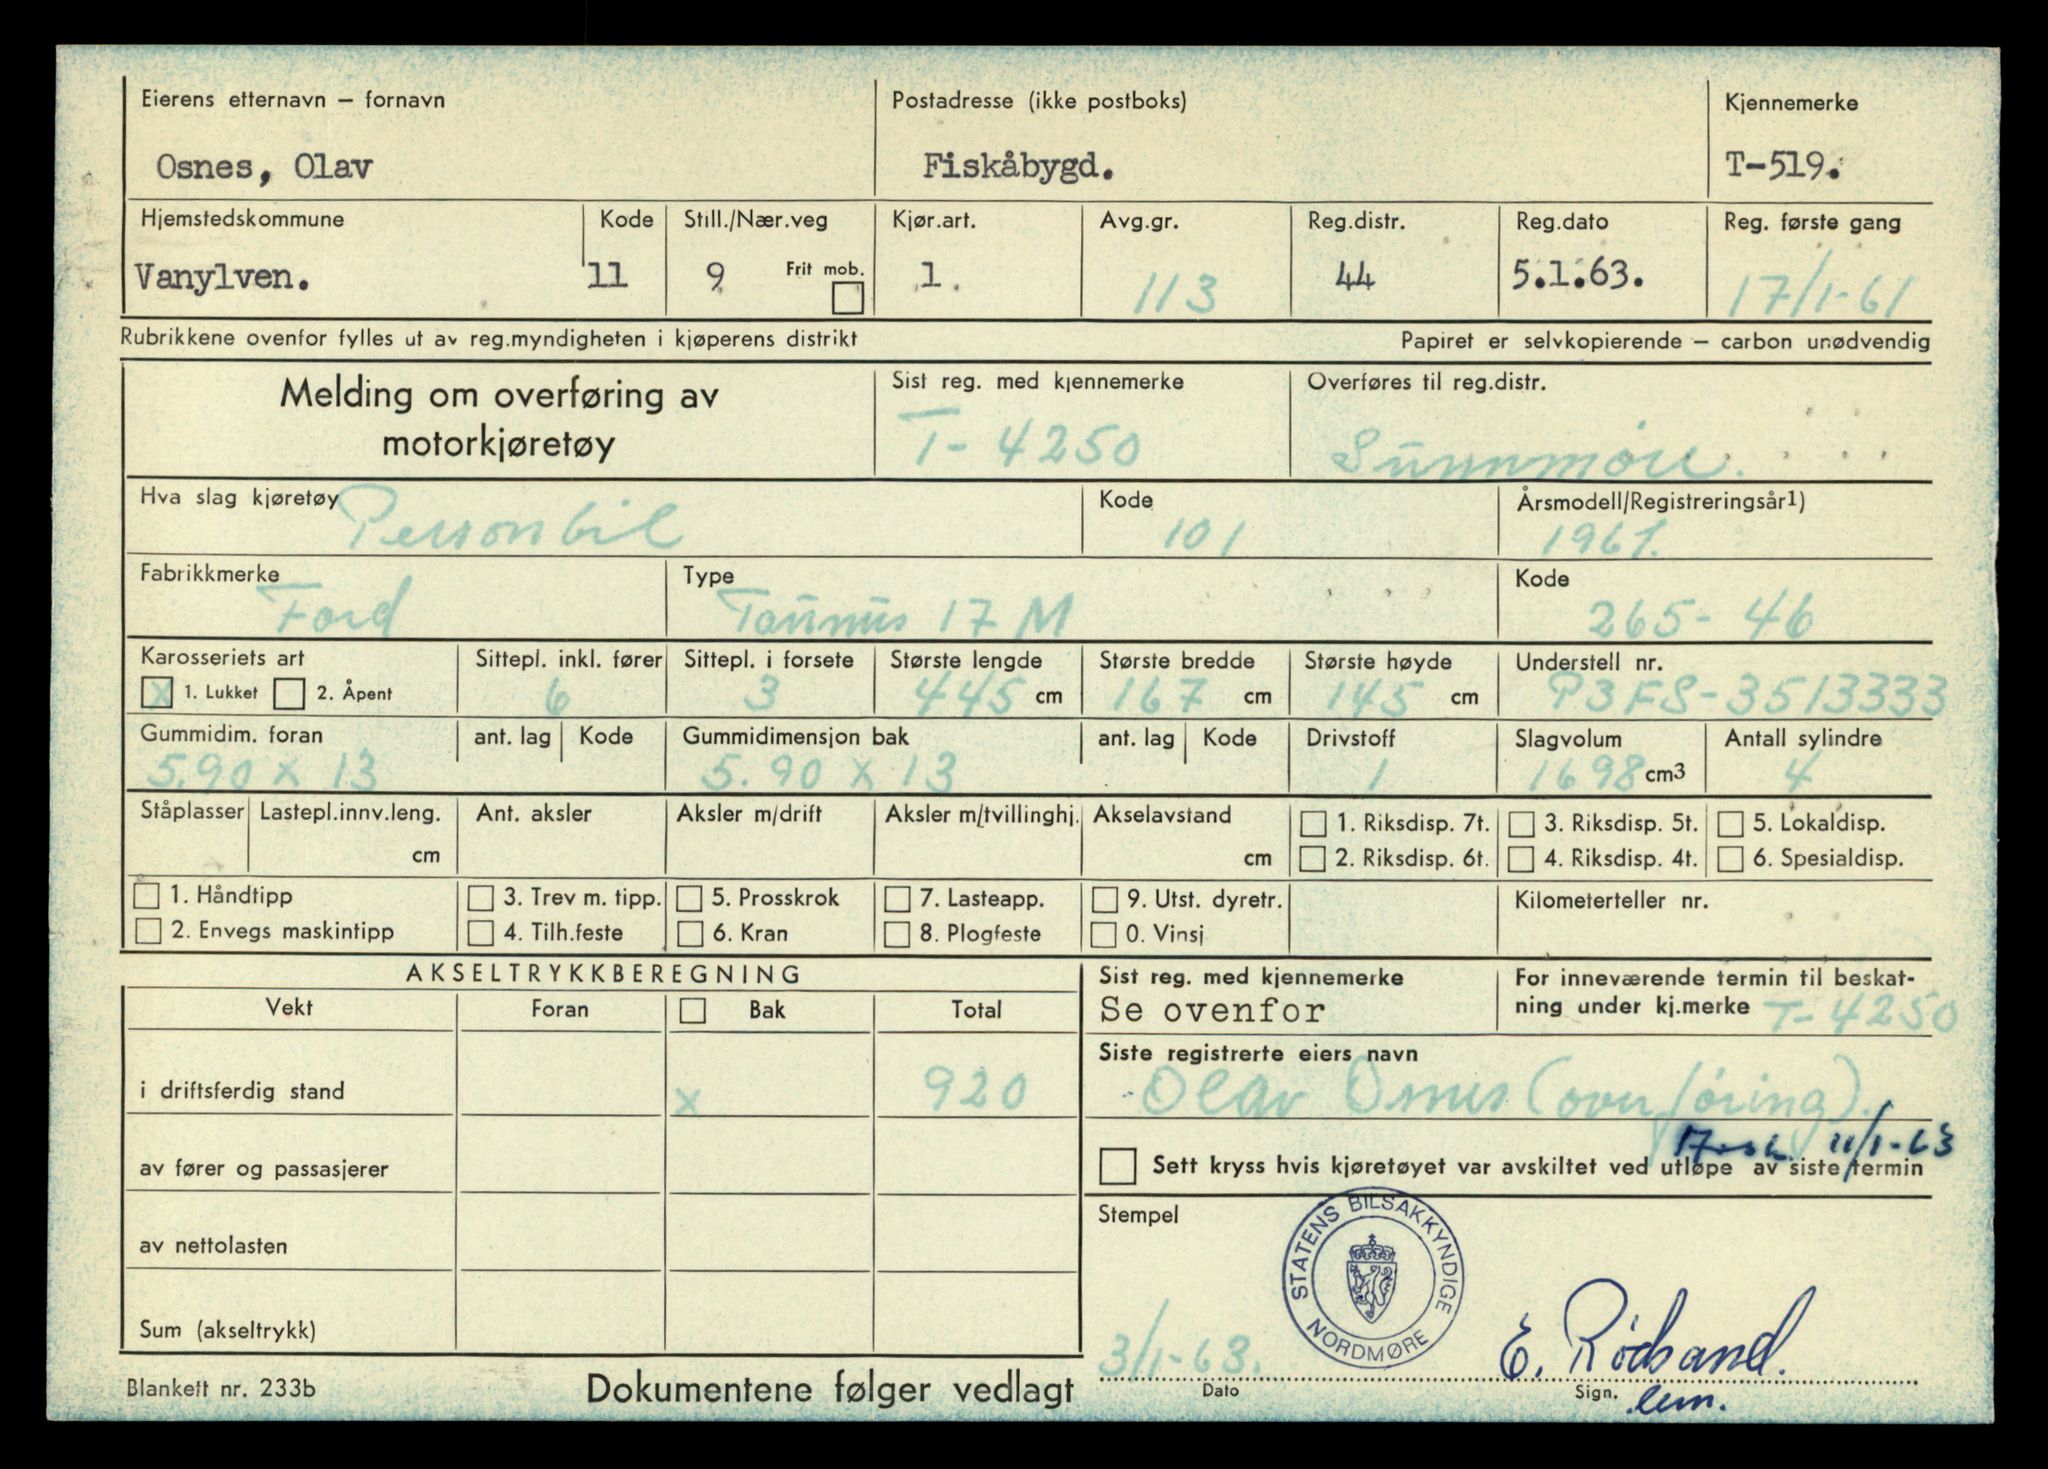 Eierens etternavn – fornavn
Osnes, Olav
Postadresse (ikke postboks)
Fiskåbygd.
Kjennemerke
T-519.
Hjemstedskommune
Vanylven.
Kode
11
Still./Nær.veg
9
Frit mob.
Kjør.art.
1.
Avg.gr.
113
Reg.distr.
44
Reg.dato
5.1.63.
Reg. første gang
17/1-61
Rubrikkene ovenfor fylles ut av reg.myndigheten i kjøperens distrikt
Papiret er selvkopierende – carbon unødvendig
Melding om overføring av
motorkjøretøy
Sist reg. med kjennemerke
T-4250
Overføres til reg.distr.
Sunnmøre.
Hva slag kjøretøy
Personbil
Kode
101
Årsmodell/Registreringsår1)
1961.
Fabrikkmerke
Ford
Type
Taunus 17 M
Kode
265-46
Karosseriets art
X 1. Lukket 2. Åpent
Sittepl. inkl. fører
6
Sittepl. i forsete
3
Største lengde
445 cm
Største bredde
167 cm
Største høyde
145 cm
Understell nr.
P3FS-3513333
Gummidim. foran
5.90 x 13
ant. lag
Kode
Gummidimensjon bak
5.90 x 13
ant. lag
Kode
Drivstoff
1
Slagvolum
1698 cm3
Antall sylindre
4
Ståplasser
Lastepl.innv.leng.
cm
Ant. aksler
Aksler m/drift
Aksler m/tvillinghj.
Akselavstand
cm
1. Riksdisp. 7t.
2. Riksdisp. 6t.
3. Riksdisp. 5t.
4. Riksdisp. 4t.
5. Lokaldisp.
6. Spesialdisp.
1. Håndtipp
2. Envegs maskintipp
3. Trev m. tipp.
4. Tilh.feste
5. Prosskrok
6. Kran
7. Lasteapp.
8. Plogfeste
9. Utst. dyretr.
0. Vinsj
Kilometerteller nr.
AKSELTRYKKBEREGNING
Vekt
Foran
Bak
Total
i driftsferdig stand
x
920
av fører og passasjerer
av nettolasten
Sum (akseltrykk)
Sist reg. med kjennemerke
Se ovenfor
For inneværende termin til beskat-
ning under kj.merke T-4250
Siste registrerte eiers navn
Olav Osnes (overføring).
11/1-63
Sett kryss hvis kjøretøyet var avskiltet ved utløpe av siste termin
Stempel
STATENS BILSAKKYNDIGE
NORDMØRE
3/1-63.
Dato
E. Rødsand.
Sign.
Blankett nr. 233b
Dokumentene følger vedlagt